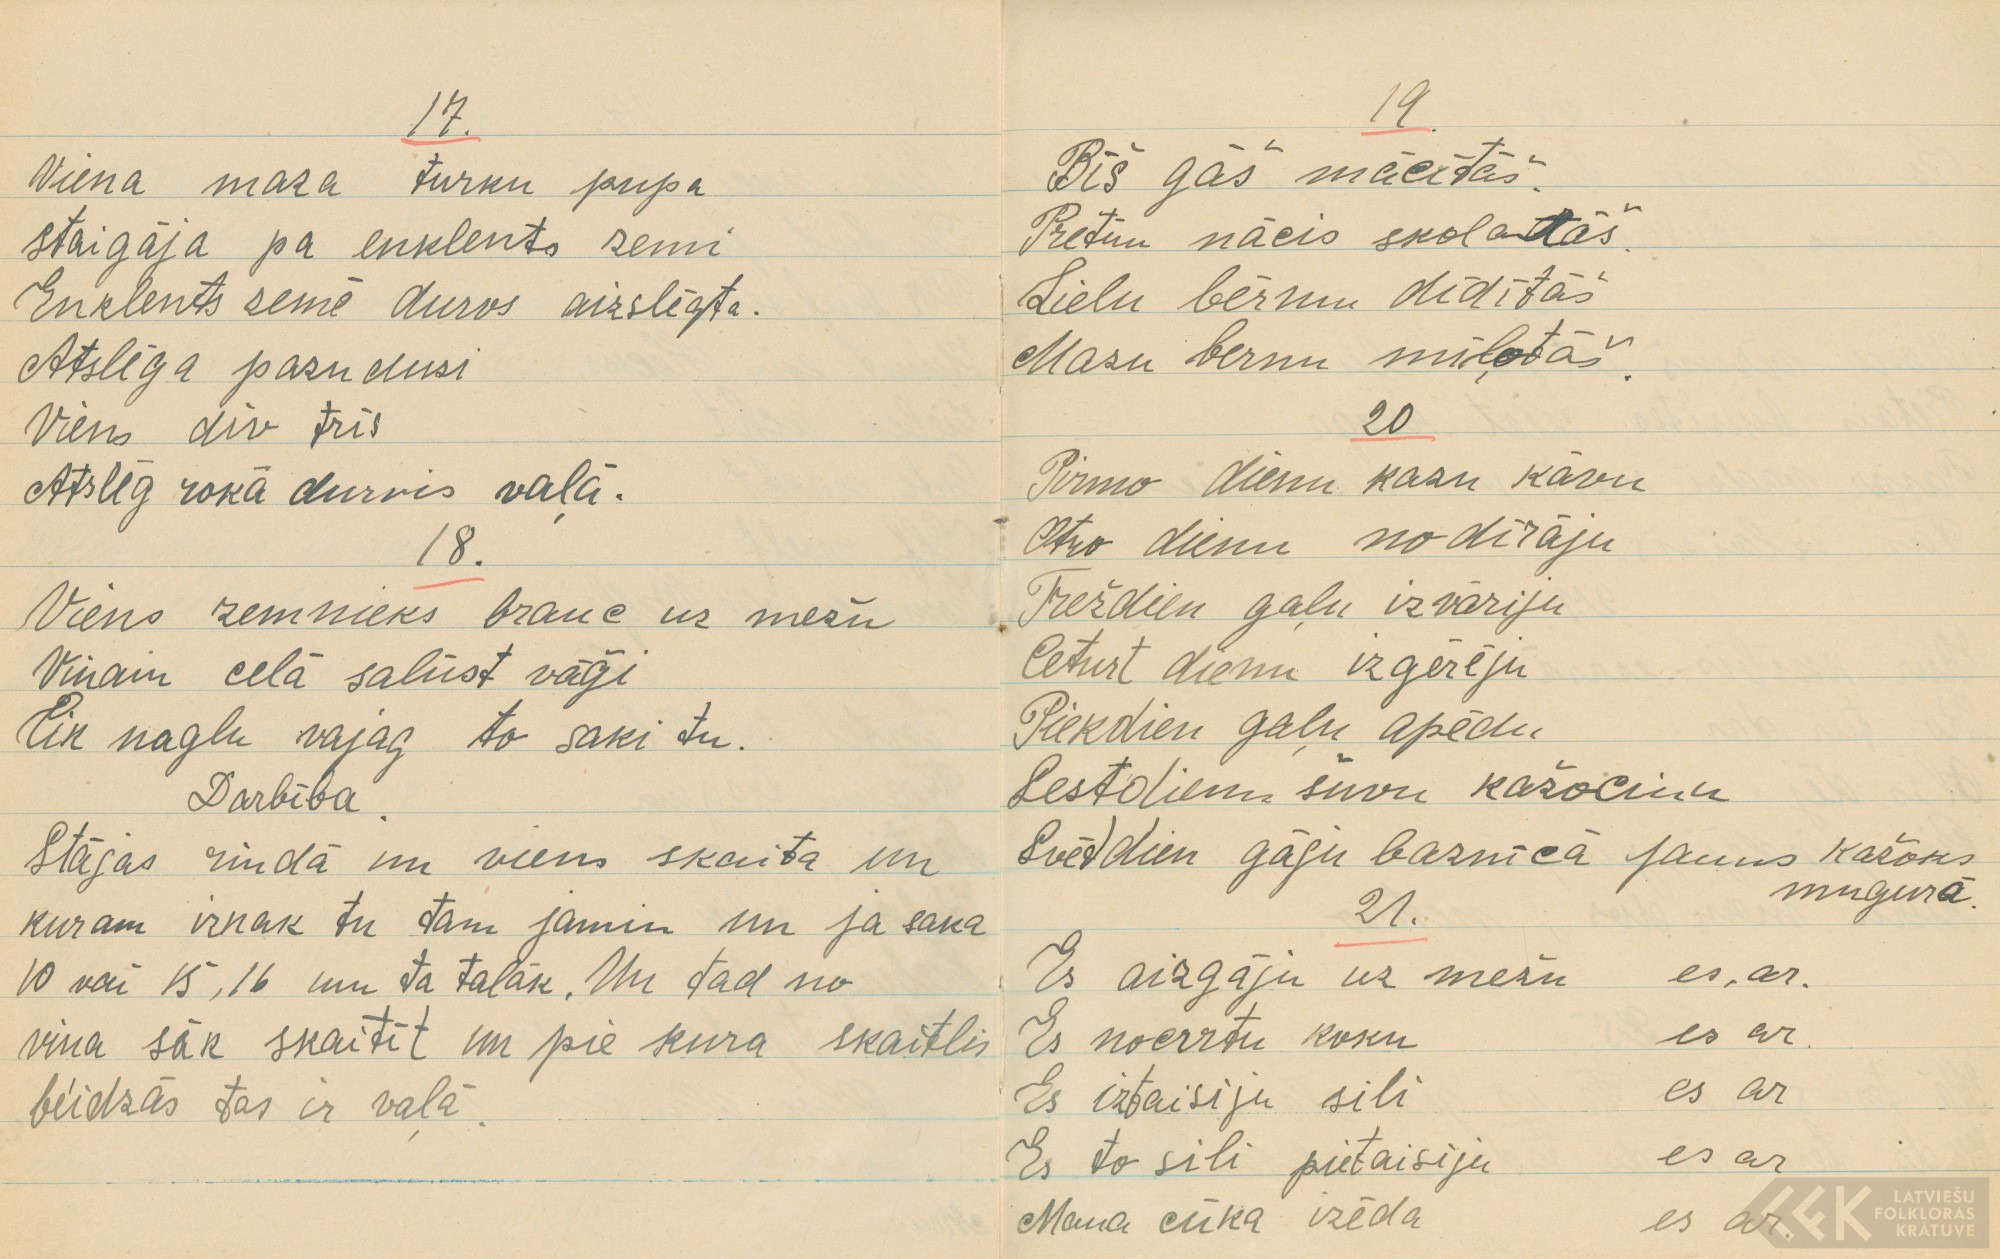 17.
Viena maza turku pupa
staigāja pa enklents zemi
Enklents zemē durvs aizslēgta.
Atslēga pazudusi
Viens div trīs
Atslēg rokā durvis vaļā.
18.
Viens zemnieks brauc uz mežu
Viņam celā salūst vāģi
Cik naglu vajag to saki tu.
Darbība.
Stājas rindā un viens skaita un
kuram iznak tu tam jamin un ja saka
10 vai 15, 16 un ta talāk. Un tad no
viņa sāk skaitīt un pie kura skaitlis
beidzās tas ir vaļā.
19.
Bīš gāš mācītāš.
Pretim nācis skolatāš.
Lielu bērnu dīdītāš
Mazu bērnu mīļotāš.
20
Pirmo dienu kazu kāvu
Otro dienu nodīrāju
Trešdien gaļu izvāriju
Ceturt dienu izgērēju
Piekdien gaļu apēdu
Sestdienu šuvu kažociņu
Svētdien gāju baznīcā jauns kažoks
mugurā.
21.
Es aizgāju uz mežu es, ar.
Es nocirrtu koku es ar.
Es iztaisiju sili es ar
Es to sili pietaisiju es ar
Mana cūka izēda es ar.
LATVIEŠU
FOLKLORAS
KRĀTUVE